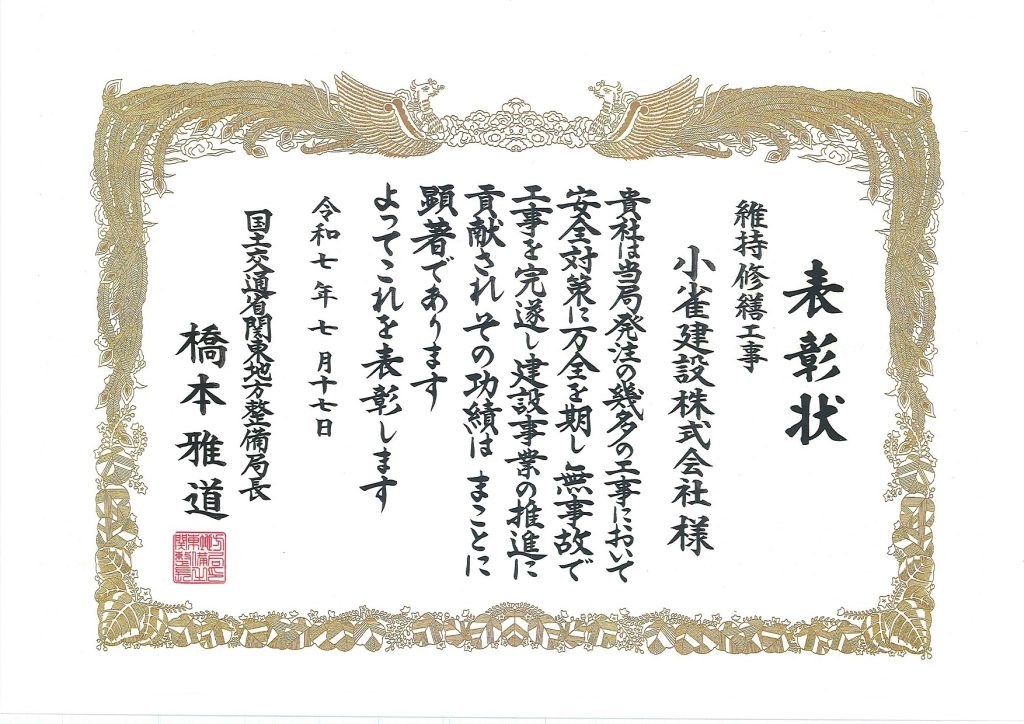 表彰状
維持修繕工事
小雀建設株式会社様
貴社は当局発注の幾多の工事において
安全対策に万全を期し無事故で
工事を完遂し建設事業の推進に
貢献されその功績はまことに
顕著であります
よってこれを表彰します
令和七年七月十七日
国土交通省関東地方整備局長
橋本雅道